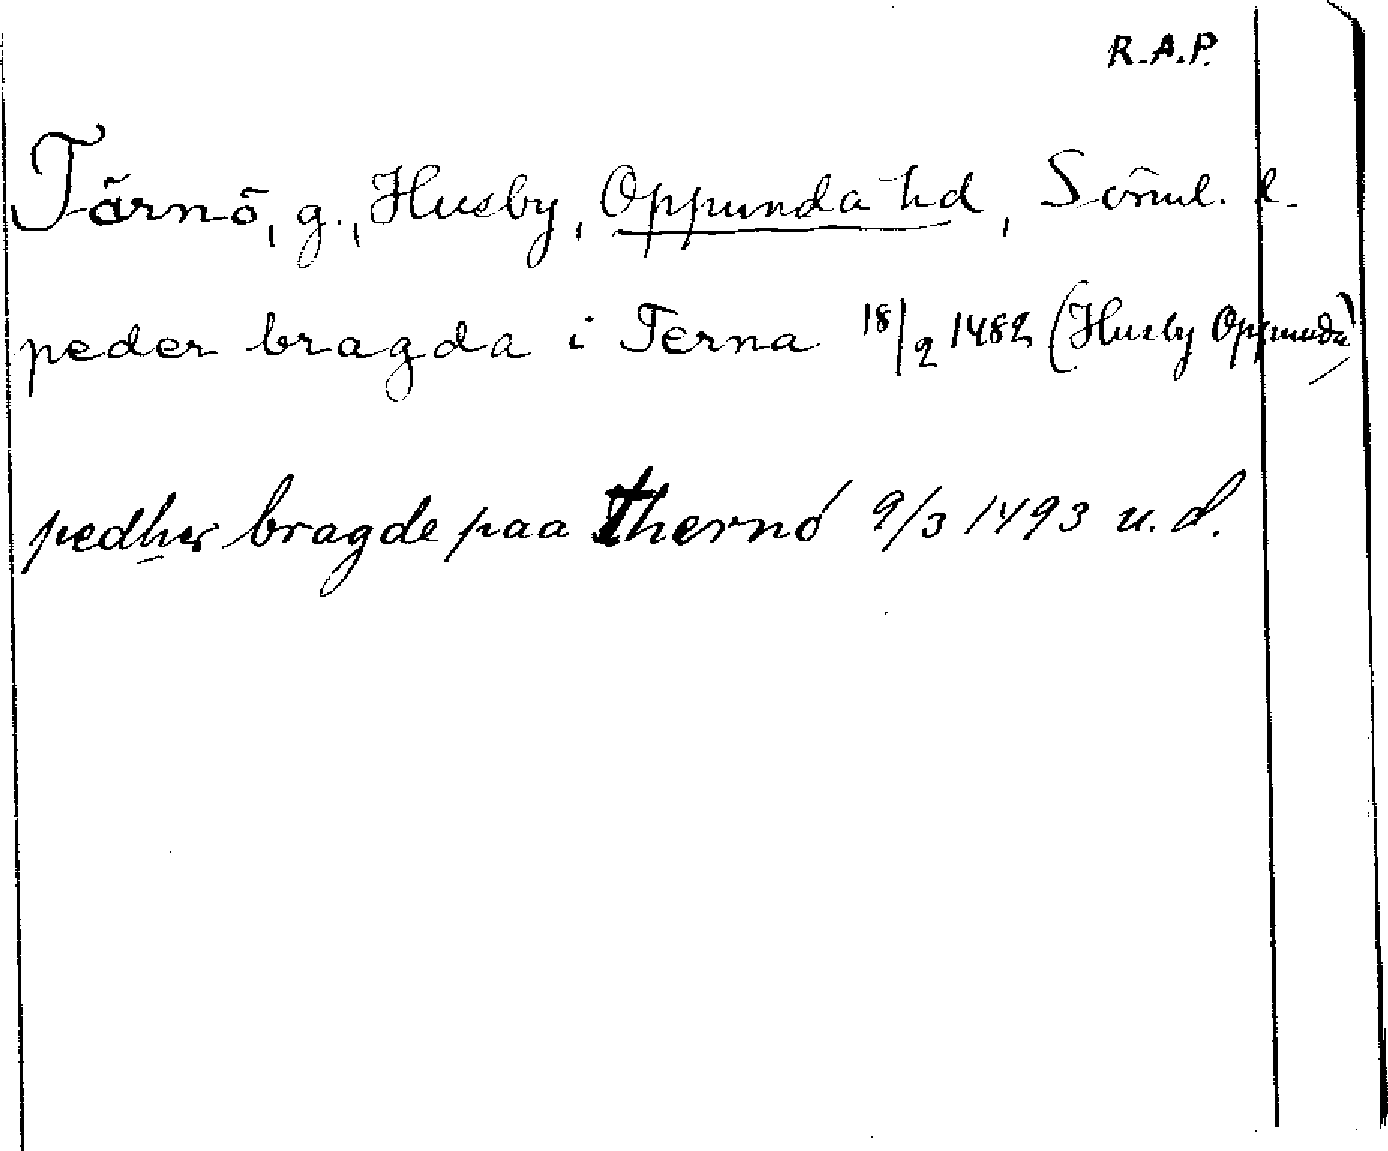 R.A.P.
Tärnö, g., Husby, Oppunda hd, Söml. l.
peder bragda i Terna 18/2 1482 (Husby Oppunda)
pedher bragde paa thernö 9/3 1493 u. d.